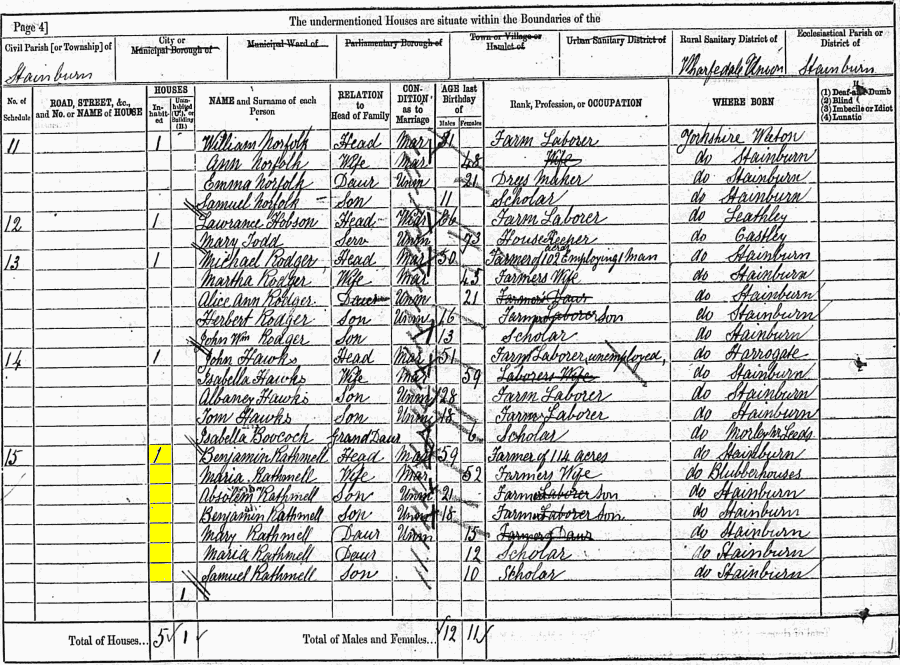 Page 4] The undermentioned Houses are situate within the Boundaries of the
Civil Parish [or Township] of City or Municipal Borough of Municipal Ward of Parliamentary Borough of Town or Village or Hamlet of Urban Sanitary District of Rural Sanitary District of Ecclesiastical Parish or District of
Stainburn Wharfedale Union Stainburn
No. of Schedule ROAD, STREET, &c., and No. or NAME of HOUSE HOUSES Inhabited Uninhabited (U.), or Building (B.) NAME and Surname of each Person RELATION to Head of Family CONDITION as to Marriage AGE last Birthday of Males Females Rank, Profession, or OCCUPATION WHERE BORN (1) Deaf-and-Dumb (2) Blind (3) Imbecile or Idiot (4) Lunatic
11 1 William Norfolk Head Mar Farm Laborer Yorkshire Weeton
Ann Norfolk Wife Mar 48 Wife do Stainburn
Emma Norfolk Daur Unm 21 Dress Maker do Stainburn
Samuel Norfolk Son 11 Scholar do Stainburn
12 1 Lawrance Hobson Head 86 Farm Laborer do Leathley
Mary Todd Serv Unm House Keeper do Castley
13 1 Michael Rodger Head Mar 50 Farmer of 102 acres Employing 1 Man do Stainburn
Martha Rodger Wife Mar 45 Farmers Wife do Stainburn
Alice Ann Rodger Daur Unm 21 Farmers Daur do Stainburn
Herbert Rodger Son Unm 16 Farm Laborer Son do Stainburn
John Wm Rodger Son 13 Scholar do Stainburn
14 1 John Hawks Head Mar 51 Farm Laborer, unemployed, do Harrogate
Isabella Hawks Wife Mar 59 Laborers Wife do Stainburn
Albaney Hawks Son Unm 28 Farm Laborer do Stainburn
Tom Hawks Son Unm 18 Farm Laborer do Stainburn
Isabella Boocock Grand Daur 6 Scholar do Morley Nr Leeds
15 1 Benjamin Rathmell Head Mar 59 Farmer of 114 acres do Stainburn
Maria Rathmell Wife Mar 52 Farmers Wife do Blubberhouses
Absolem Rathmell Son Unm 21 Farm Laborer Son do Stainburn
Benjamin Rathmell Son Unm 18 Farm Laborer Son do Stainburn
Mary Rathmell Daur Unm 15 Farmers Daur do Stainburn
Maria Rathmell Daur 12 Scholar do Stainburn
Samuel Rathmell Son 10 Scholar do Stainburn
1
Total of Houses... 5 1 Total of Males and Females... 12 11